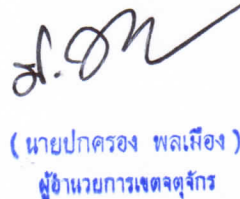 ( นายปกครอง พลเมือง )
ผู้อำนวยการเขตจตุจักร